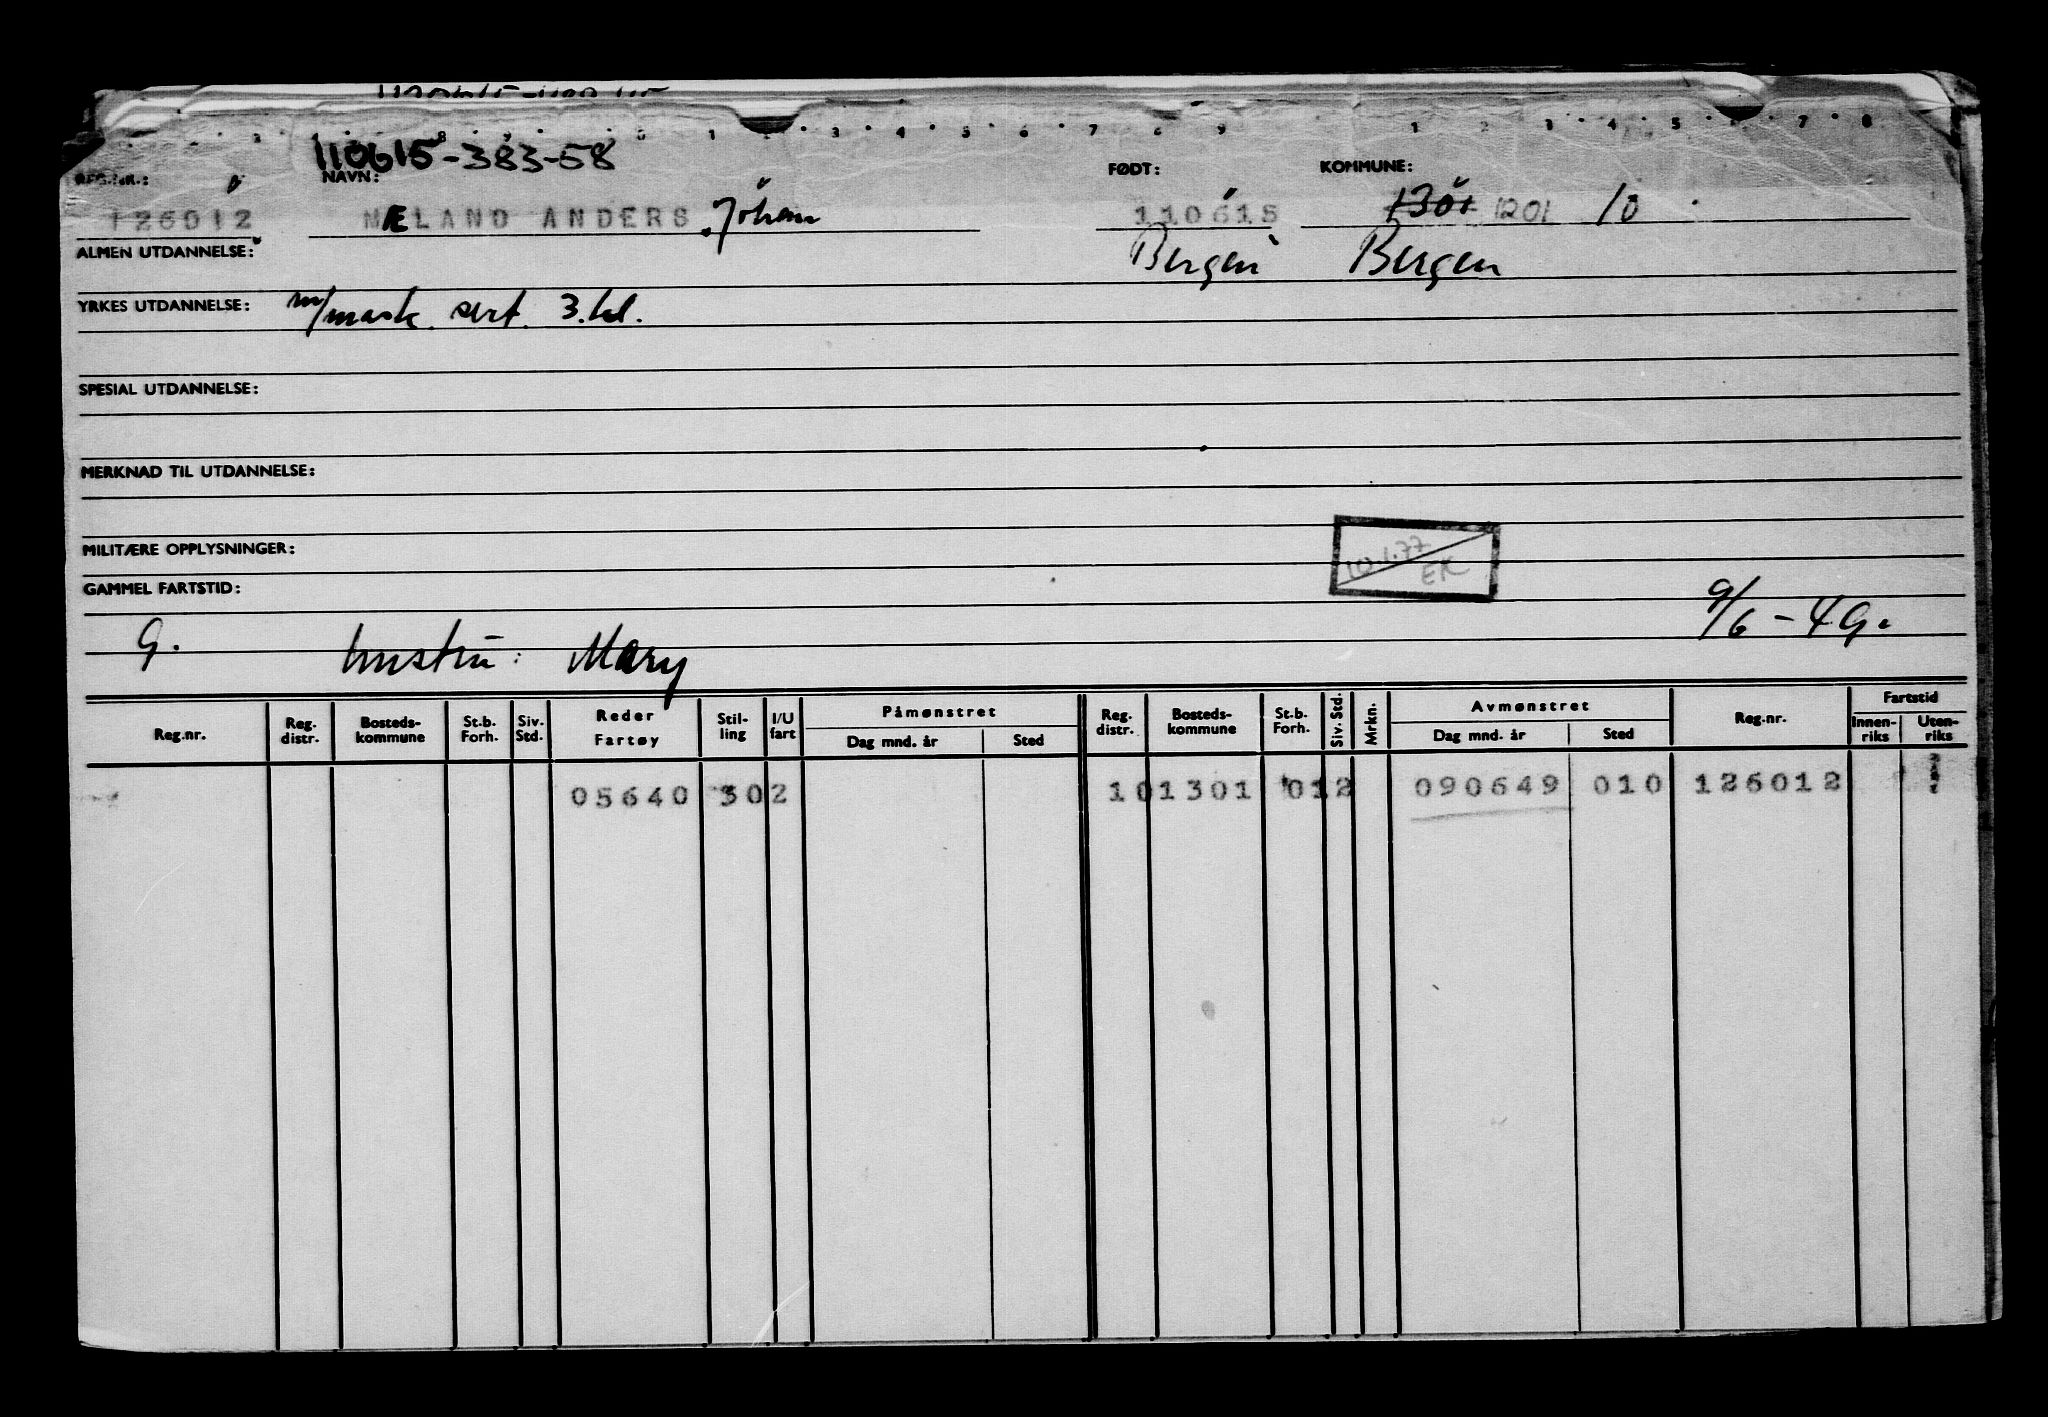 110615-383-58
REG.NR.: NAVN: FØDT: KOMMUNE:
126012 MÆLAND ANDERS Johan 110615 1301 1201 10
ALMEN UTDANNELSE: Bergen Bergen
YRKES UTDANNELSE: m/mask. sert. 3.kl.
SPESIAL UTDANNELSE:
MERKNAD TIL UTDANNELSE:
MILITÆRE OPPLYSNINGER:
10.1.77
EK
GAMMEL FARTSTID:
9/6-49.
G. hustru: Mary
Reg.nr. Reg. distr. Bosteds-kommune St.b. Forh. Siv. Std. Reder Fartøy Stil-ling I/U fart Påmønstret Dag mnd. år Sted Reg. distr. Bosteds-kommune St.b. Forh. Siv. Std. Mrkn. Avmønstret Dag mnd. år Sted Reg.nr. Fartstid Innen-riks Uten-riks
05640 302 101301 012 090649 010 126012